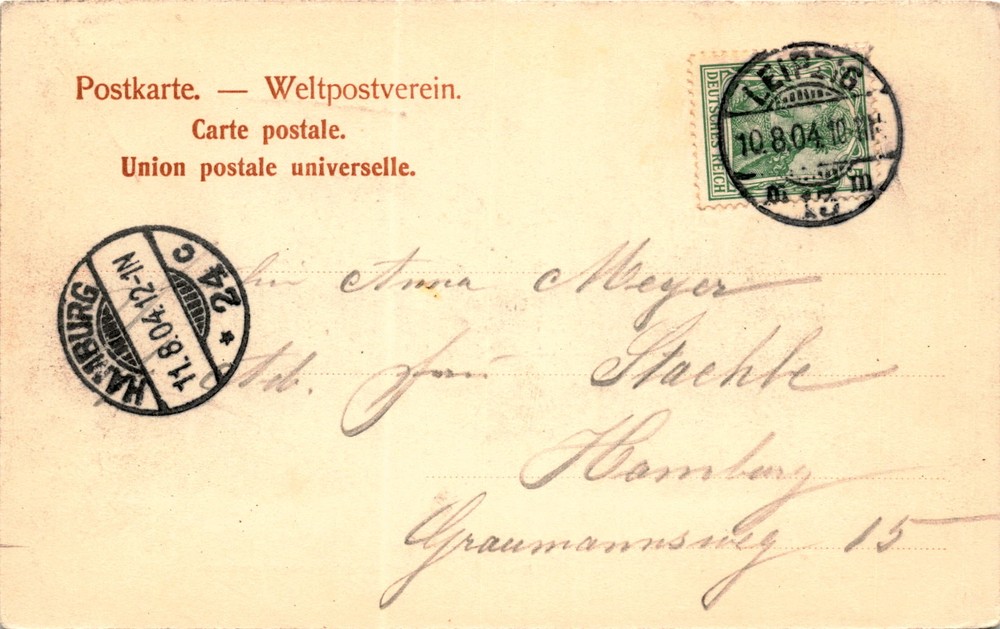 Postkarte. — Weltpostverein.
Carte postale.
Union postale universelle.
DEUTSCHES REICH
LEIPZIG
10.8.04.
m 13 m
HAMBURG
11.8.04.12-1N
* 24 C
Anna Meyer
Adr. Frau Staehle
Hamburg
Graumannsweg 15